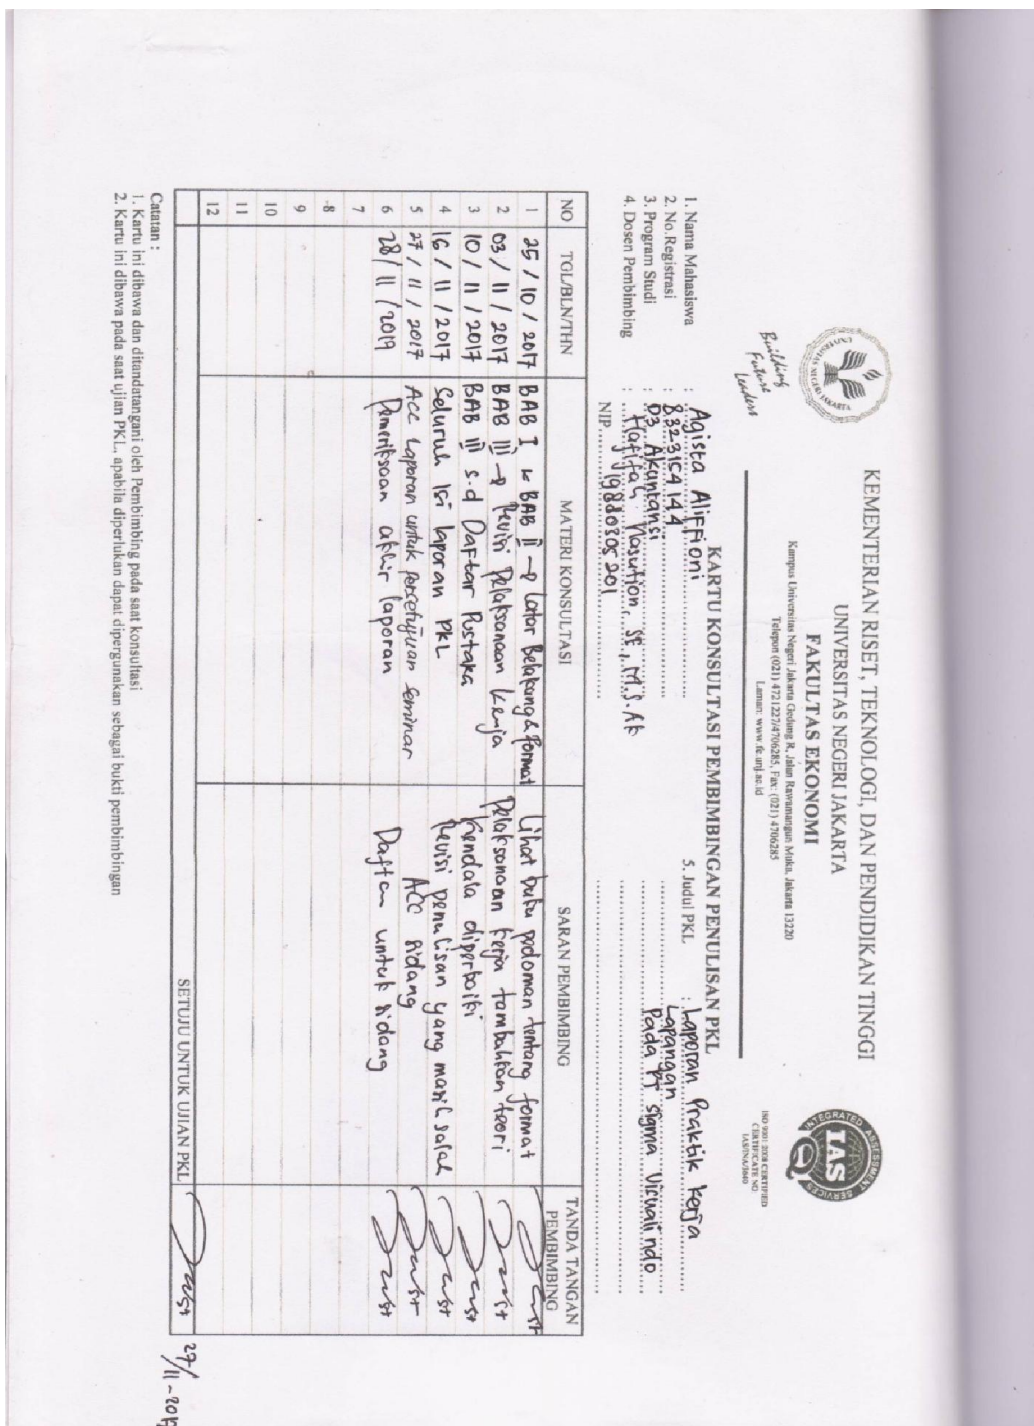 KEMENTERIAN RISET, TEKNOLOGI, DAN PENDIDIKAN TINGGI
UNIVERSITAS NEGERI JAKARTA
FAKULTAS EKONOMI
Kampus Universitas Negeri Jakarta Gedung R, Jalan Rawamangun Muka, Jakarta 13220
Telepon (021) 4721227/4706285, Fax: (021) 4706285
Laman: www.fe.unj.ac.id
Building
Future
Leaders
INTEGRATED ASSESSMENT SERVICES
IAS
ISO 9001:2008 CERTIFIED
CERTIFICATE NO:
KARTU KONSULTASI PEMBIMBINGAN PENULISAN PKL
1. Nama Mahasiswa : Agista Alifrioni
2. No.Registrasi : 8323154144
3. Program Studi : D3 Akuntansi
4. Dosen Pembimbing : Hafifah Nasution, SE., M.S.Ak
NIP. 19880305201
5. Judul PKL : Laporan Praktik Kerja
Lapangan
Pada PT Sigma Virtualindo
NO TGL/BLN/THN MATERI KONSULTASI SARAN PEMBIMBING TANDA TANGAN PEMBIMBING
1 25/10/2017 BAB I & BAB II → Latar Belakang & Format Lihat buku pedoman tentang format
2 03/11/2017 BAB III → Revisi Pelaksanaan Kerja Pelaksanaan kerja tambahkan teori
3 10/11/2017 BAB III s.d Daftar Pustaka Kendala diperbaiki
4 16/11/2017 Seluruh Isi laporan PKL Revisi penulisan yang masih salah
5 27/11/2017 Acc Laporan untuk persetujuan seminar ACC Sidang
6 28/11/2019 Pemeriksaan akhir laporan Daftar untuk sidang
7
8
9
10
11
12
SETUJU UNTUK UJIAN PKL
27/11-2017
Catatan :
1. Kartu ini dibawa dan ditandatangani oleh Pembimbing pada saat konsultasi
2. Kartu ini dibawa pada saat ujian PKL, apabila diperlukan dapat dipergunakan sebagai bukti pembimbingan